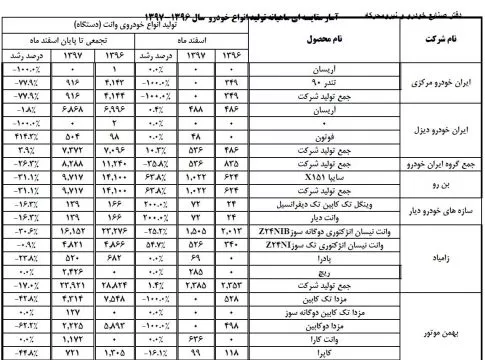 دفتر صنایع خودرو و نیرومحرکه
آمار مقایسه ای ماهیانه تولید انواع خودرو سال ۱۳۹۶-۱۳۹۷
نام شرکت نام محصول تولید انواع خودروی وانت (دستگاه)
اسفند ماه تجمعی تا پایان اسفند ماه
۱۳۹۶ ۱۳۹۷ درصد رشد ۱۳۹۶ ۱۳۹۷ درصد رشد
ایران خودرو مرکزی
آریسان ۰ ۰ ۰.۰% ۱ ۰ -۱۰۰.۰%
تندر ۹۰ ۳۴۹ ۰ -۱۰۰.۰% ۴,۱۴۳ ۹۱۶ -۷۷.۹%
جمع تولید شرکت ۳۴۹ ۰ -۱۰۰.۰% ۴,۱۴۴ ۹۱۶ -۷۷.۹%
ایران خودرو دیزل
آریسان ۴۸۶ ۴۸۸ ۰.۴% ۶,۹۹۶ ۶,۸۶۸ -۱.۸%
۰ ۰ ۰ ۰.۰% ۲ ۰ -۱۰۰.۰%
فوتون ۰ ۴۸ ۰.۰% ۹۸ ۵۰۴ ۴۱۴.۳%
جمع تولید شرکت ۴۸۶ ۵۳۶ ۱۰.۳% ۷,۰۹۶ ۷,۳۷۲ ۳.۹%
جمع گروه ایران خودرو جمع تولید شرکت ۸۳۵ ۵۳۶ -۳۵.۸% ۱۱,۲۴۰ ۸,۲۸۸ -۲۶.۳%
بن رو
سایپا X۱۵۱ ۶۲۴ ۱,۰۲۲ ۶۳.۸% ۱۴,۱۰۰ ۹,۷۱۷ -۳۱.۱%
جمع تولید شرکت ۶۲۴ ۱,۰۲۲ ۶۳.۸% ۱۴,۱۰۰ ۹,۷۱۷ -۳۱.۱%
سازه های خودرو دیار
وینگل تک کابین تک دیفرانسیل ۲۴ ۷۲ ۲۰۰.۰% ۱۶۶ ۱۳۹ -۱۶.۳%
وانت دیار ۲۴ ۷۲ ۲۰۰.۰% ۱۶۶ ۱۳۹ -۱۶.۳%
زامیاد
وانت نیسان انژکتوری دوگانه سوز Z۲۴NIB ۲,۰۱۳ ۱,۵۰۵ -۲۵.۲% ۲۳,۲۷۶ ۱۶,۱۵۲ -۳۰.۶%
وانت نیسان انژکتوری تک سوز Z۲۴NI ۳۴۰ ۵۲۶ ۵۴.۷% ۴,۸۶۶ ۴,۸۲۱ -۰.۹%
پادرا ۰ ۶۹ ۰.۰% ۶۸۲ ۵۲۰ -۲۳.۸%
ریچ ۰ ۲۸۵ ۰.۰% ۰ ۲,۴۲۶ ۰.۰%
جمع تولید شرکت ۲,۳۵۳ ۲,۳۸۵ ۱.۴% ۲۸,۸۲۴ ۲۳,۹۲۱ -۱۷.۰%
بهمن موتور
مزدا تک کابین ۵۲۸ ۰ -۱۰۰.۰% ۷,۵۴۸ ۴,۳۱۴ -۴۲.۸%
مزدا تک کابین دوگانه سوز ۰ ۰ ۰.۰% ۰ ۱۲۷ ۰.۰%
مزدا دوکابین ۴۹۸ ۰ -۱۰۰.۰% ۵,۸۹۳ ۲,۲۲۵ -۶۲.۲%
وانت کارا ۰ ۶۳۶ ۰.۰% ۰ ۱,۱۷۲ ۰.۰%
کاپرا ۱۱۸ ۹۹ -۱۶.۱% ۱,۳۰۵ ۷۲۱ -۴۴.۸%